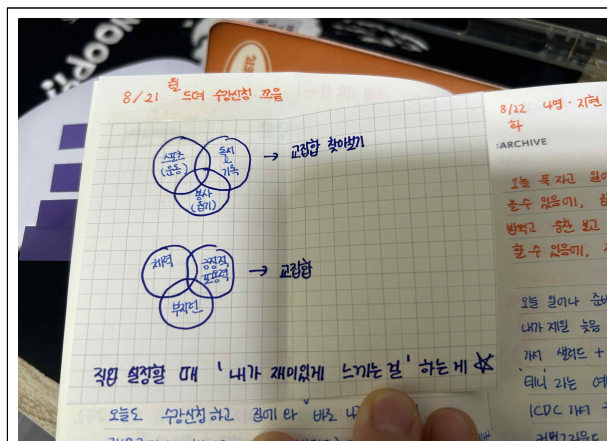 8/21 월 드뎌 수강신청 끄읕
스포츠
(운동)
독서
&
기록
봉사
(돕기)
→ 교집합 찾아보기
체력
긍정적
포용력
부지런
→ 교집합
직업 설정할 때 '내가 재미있게 느끼는 걸' 하는게 ☆
오늘도 수강신청하고 집에 와 바로
8/22 4명·지현
화
:ARCHIVE
오늘 푹 자고 일어
할 수 있음에,
밥먹고 중간 보고
할 수 있음에,
오늘 일어나 준비
내가 제일 늦음
가서 샐러드 +
라는
ICDC 가서